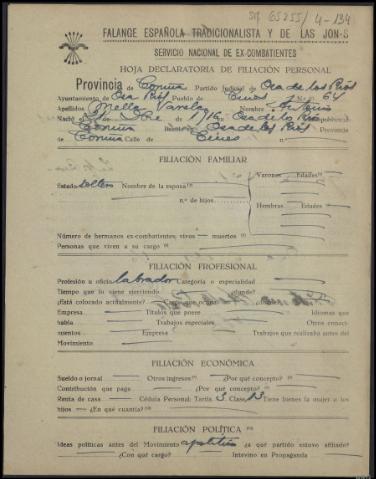 65255/4-134
FALANGE ESPAÑOLA TRADICIONALISTA Y DE LAS JON-S
SERVICIO NACIONAL DE EX-COMBATIENTES
HOJA DECLARATORIA DE FILIACIÓN PERSONAL
Provincia de Coruña Partido Judicial de
Ayuntamiento de Oza Ríos Pueblo de Cines
Apellidos Mella Varela Nombre
Nació de 1916 Oza de los Ríos
Coruña Oza de los Ríos Provincia
Coruña Calle de Cines
FILIACIÓN FAMILIAR
Varones Edades
Estado soltero Nombre de la esposa
n.º de hijos
Hembras Edades
Número de hermanos ex-combatientes, vivos muertos
Personas que viven a su cargo
FILIACIÓN PROFESIONAL
Profesión u oficio labrador categoría o especialidad
Tiempo que lo viene ejerciendo
¿Está colocado actualmente? Cargo que ocupa
Empresa Títulos que posee Idiomas que
habla Trabajos especiales Otros conoci-
mientos Empresa Trabajos que realizaba antes del
Movimiento
FILIACIÓN ECONÓMICA
Sueldo o jornal Otros ingresos ¿Por qué concepto?
Contribución que paga ¿Por qué concepto?
Renta de casa Cédula Personal: Tarifa 3 Clase 13 Tiene bienes la mujer o los
hijos ¿En qué cuantía?
FILIACIÓN POLÍTICA
Ideas políticas antes del Movimiento apolítico ¿a qué partido estuvo afiliado?
¿Con qué cargo? Intervino en Propaganda